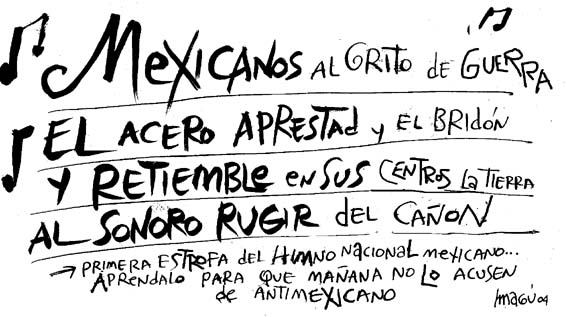 MEXICANOS AL GRITO de GUERRA
EL ACERO APRESTAd y EL BRIDÓN
Y RETIEMBLE eN SUS CENTROS La TIERRA
AL SONORO RUGIR del CAÑON
→ PRIMERA ESTROFA DEL HIMNO NACIONAL MEXICANO...
APRENDALO PARA QUE MAÑANA NO LO ACUSEN
de ANTIMEXICANO
Magú 04